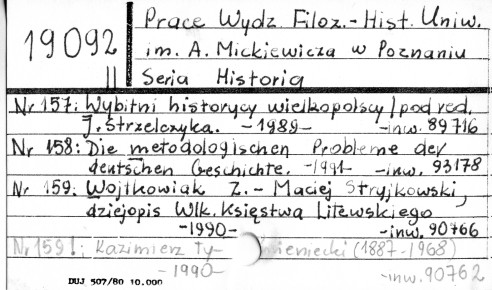 19092
II
Prace Wydz. Filoz.-Hist. Uniw.
im. A. Mickiewicza w Poznaniu
Seria Historia
Nr 157: Wybitni historycy wielkopolscy / pod red.
J. Strzelczyka. -1989- -inw. 89716
Nr 158: Die metodologischen Probleme der
deutschen Geschichte. -1991- -inw. 93178
Nr 159: Wojtkowiak Z. - Maciej Stryjkowski,
dziejopis Wlk. Księstwa Litewskiego
-1990- -inw. 90766
Nr 159!: Kazimierz Ty mieniecki (1887-1968)
-1990- -inw. 90762
DUJ 507/80 10.000